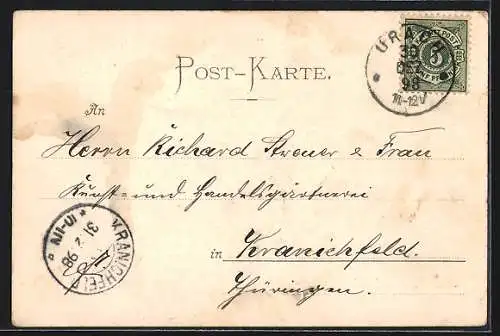 URACH
30
DEZ
98
11-12V
POST-KARTE.
An
Herrn Richard Streuer & Frau
Kunst- und Handelsgärtnerei
in Kranichfeld.
Thüringen.
KRANICHFELD
31 12 98
10-11N